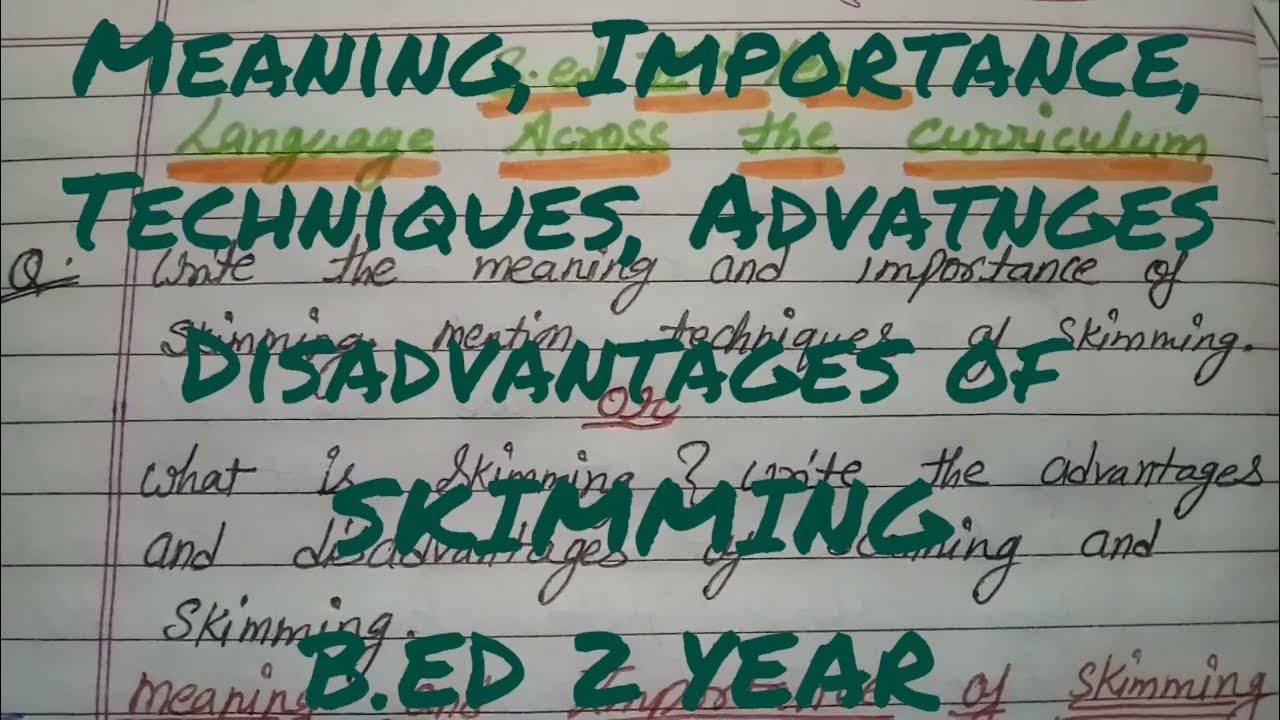 MEANING, IMPORTANCE,
Language Across the curriculum
TECHNIQUES, ADVATNGES
Q. Write the meaning and importance of
skimming. mention techniques of skimming.
DISADVANTAGES OF
or
what is skimming? write the advantages
SKIMMING
and disadvantages of and
skimming.
B.ED 2 YEAR
meaning of skimming